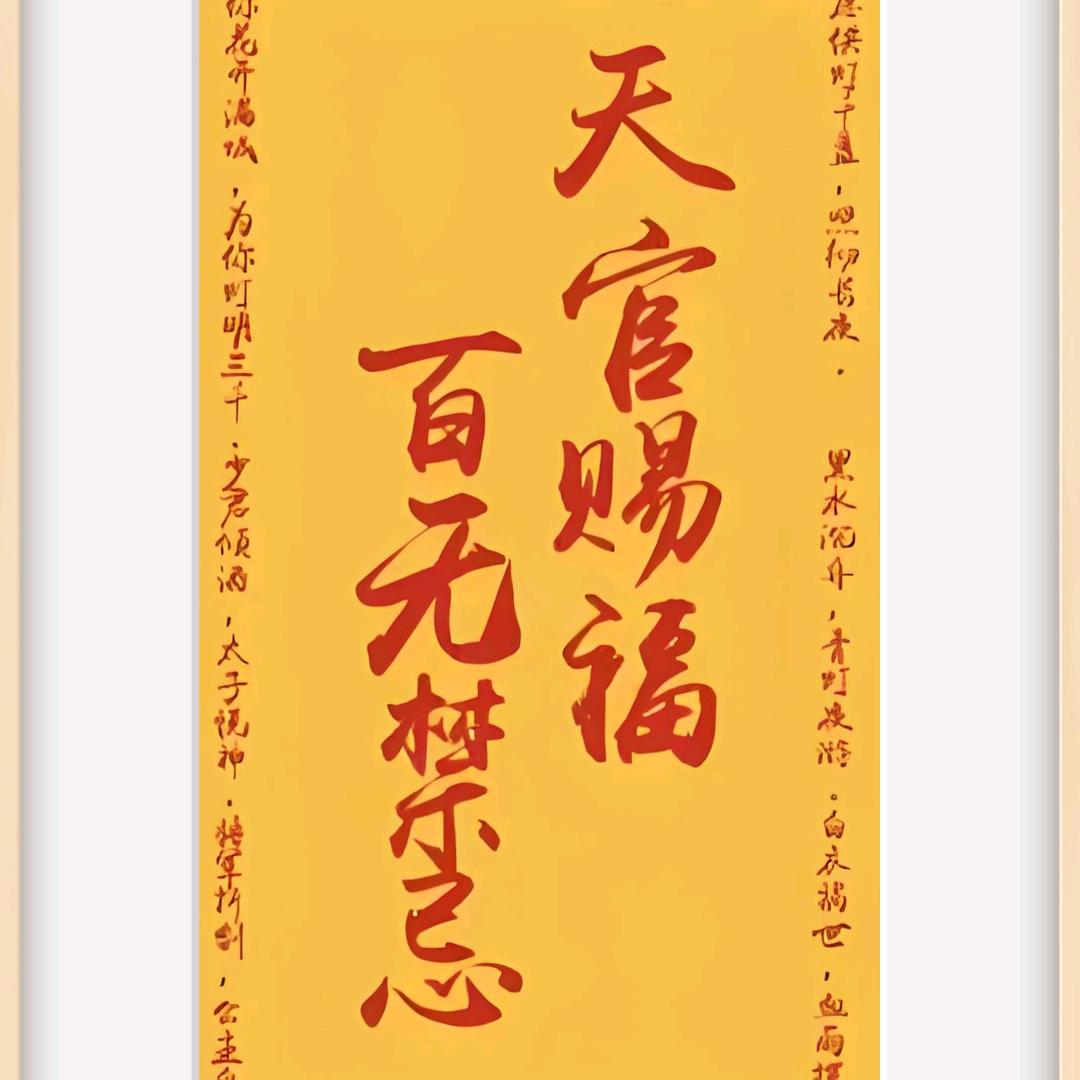 侯灯千盏,照彻长夜。 黑水沉舟,青灯夜游。白衣祸世,血雨探
天官赐福
百无禁忌
你花开满城,为你灯明三千。少君倾酒,太子悦神。将军折剑,公主自